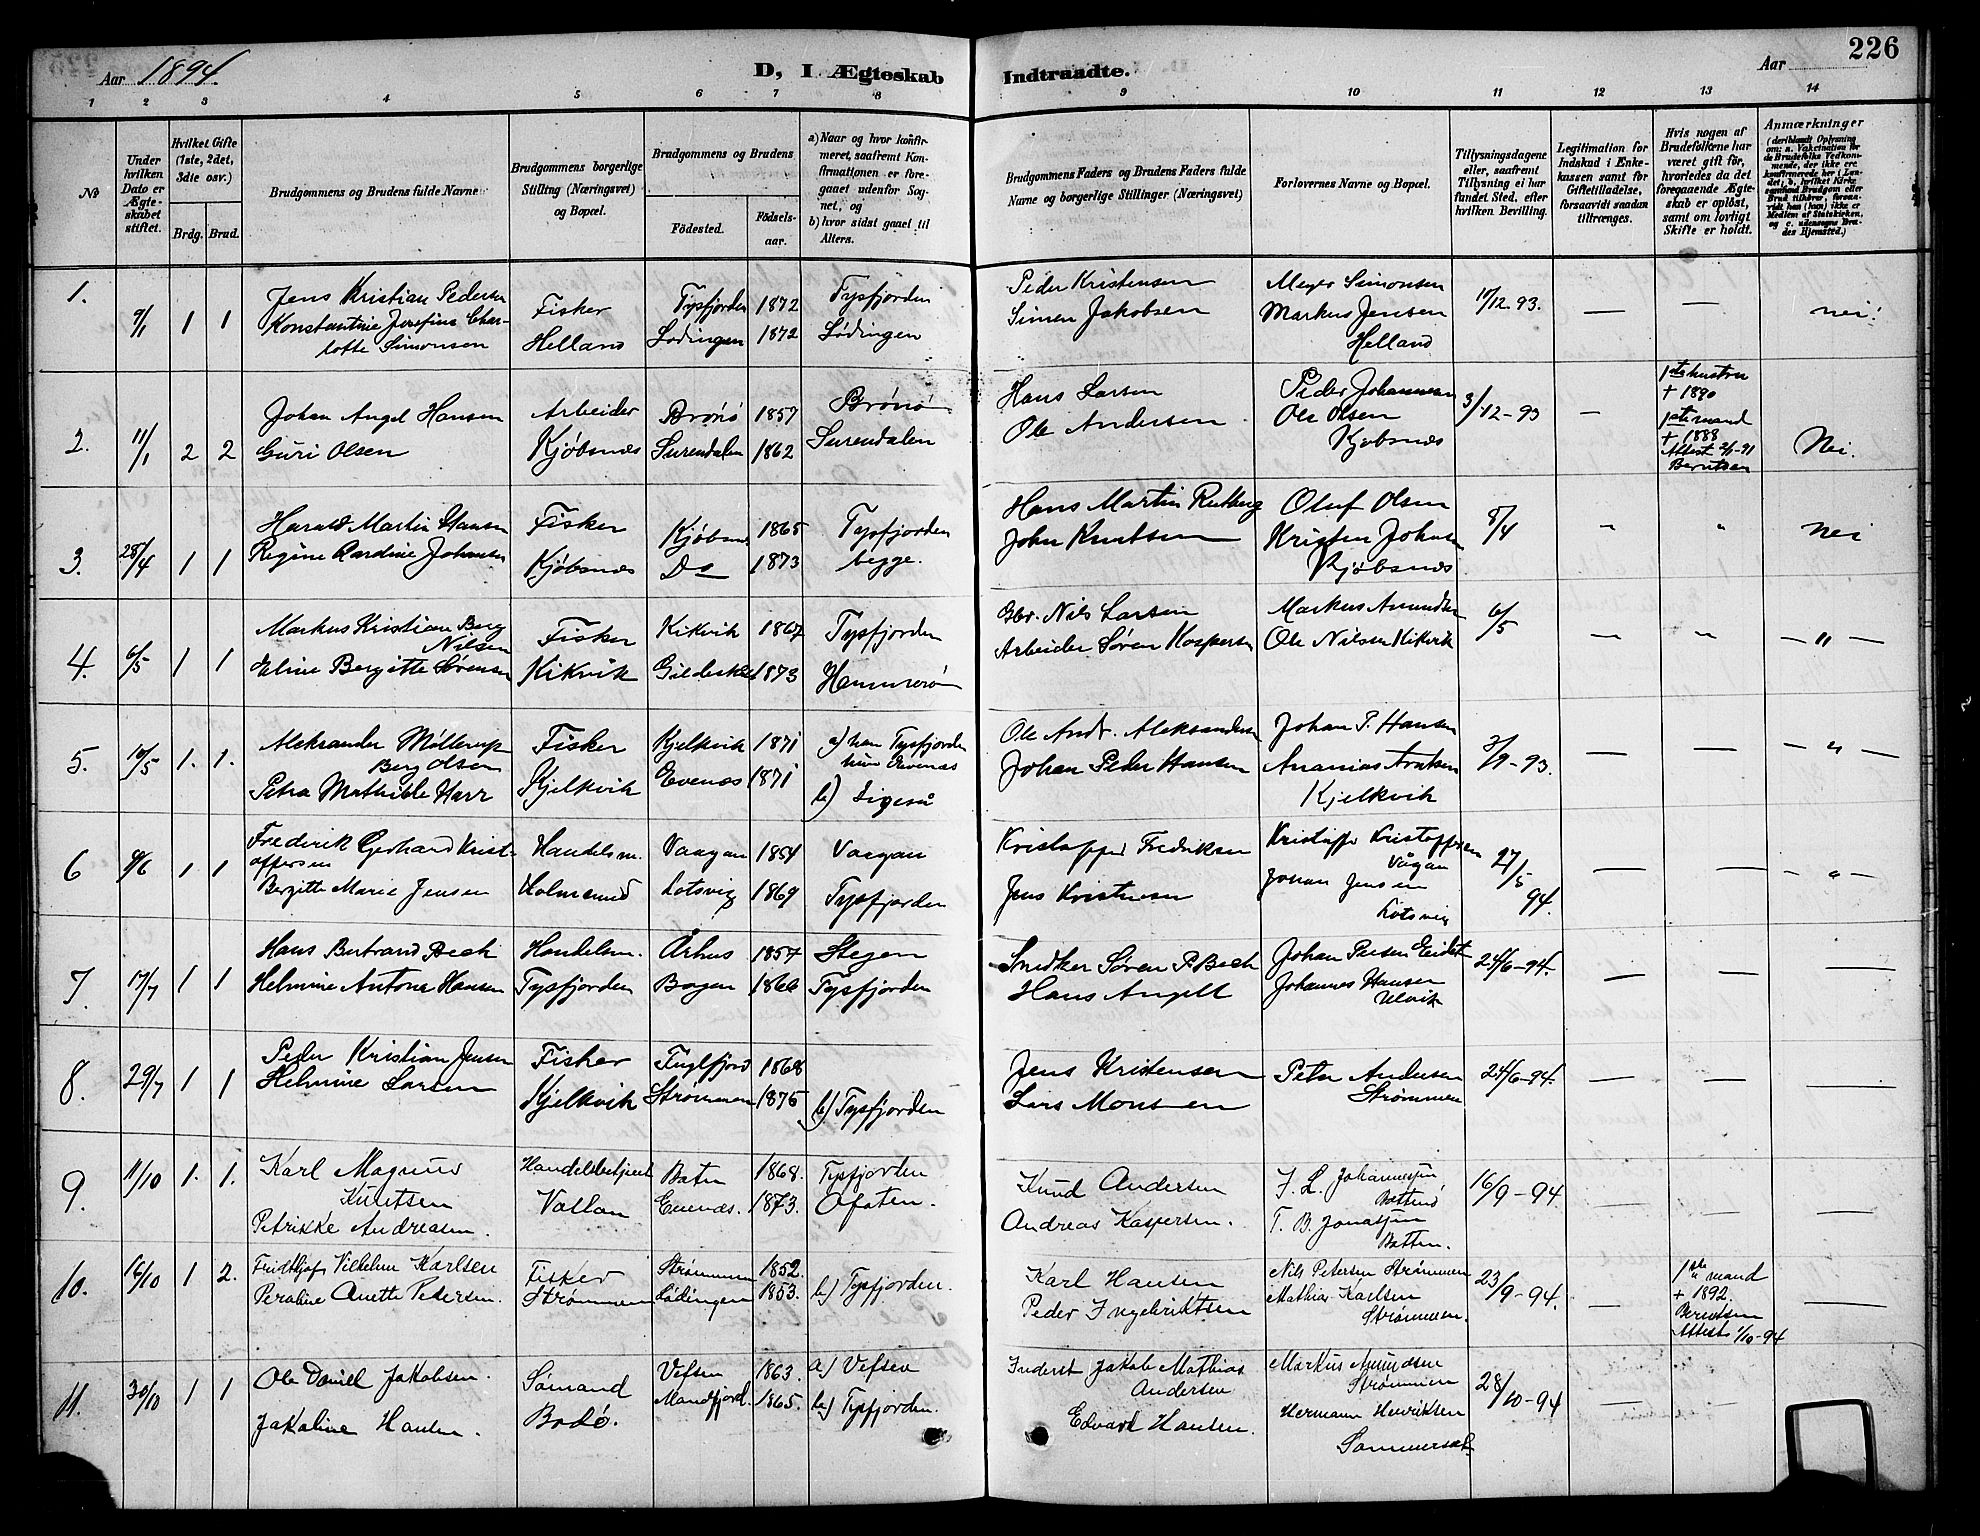 226
Aar 1894.
D, I Ægteskab
Indtraadte.
Aar
1 2 3 4 5 6 7 8 9 10 11 12 13 14
No
Under hvilken Dato er Ægteskabet stiftet.
Hvilket Gifte (1ste, 2det, 3die osv.)
Brdg. Brud.
Brudgommens og Brudens fulde Navne
Brudgommens borgerlige Stilling (Næringsvei) og Bopæl.
Brudgommens og Brudens
Fødested.
Fødselsaar.
a) Naar og hvor konfirmeret, saafremt Konfirmationen er foregaaet udenfor Sognet, og
b) hvor sidst gaaet til Alters.
Brudgommens Faders og Brudens Faders fulde Navne og borgerlige Stillinger (Næringsvei)
Forlovernes Navne og Bopæl.
Tillysningsdagene eller, saafremt Tillysning ei har fundet Sted, efter hvilken Bevilling.
Legitimation for Indskud i Enkekassen samt for Giftetilladelse, forsaavidt saadan tiltrænges.
Hvis nogen af Brudefolkene har været gift før, hvorledes da det foregaaende Ægteskab er opløst, samt om lovligt Skifte er holdt.
Anmærkninger
1. 9/1 1 1
Jens Kristian Pedersen
Konstantine Josefine Charlotte Simonsen
Fisker
Helland
Tysfjorden 1872
Lødingen 1872
Tysfjorden
Lødingen
Peder Kristensen
Simen Jakobsen
Meyer Simonsen
Markus Jensen
Helland
10/12-93. — — nei.
2. 11/1 2 2
Johan Angel Hansen
Guri Olsen
Arbeider
Kjøbsnes
Brønø 1857
Surendalen 1862
Brønø
Surendalen
Hans Larsen
Ole Andersen
Peder Johannesen
Ole Olsen
Kjøbsnes
3/12-93 —
1ste hustru
+ 1890
1ste mand
+ 1888
Attest 2/1-91
Berntsen
Nei.
3. 28/4 1 1
Harald Martin Hansen
Regine Johansen
Fisker
Kjøbsnes
Kjøbsnes 1865
Do 1873
Tysfjorden
begge.
Hans Martin
John Knutsen
Oluf Olsen
Kristen Johnsen
Kjøbsnes
8/4 " " Nei
4. 6/5 1 1
Markus Kristian Berg
Nilsen
Eline Bergitte Sørensen
Fisker
Kikvik
Kikvik 1867
Gildeskål 1873
Tysfjorden
Hammerø
Gbr. Nils Larsen
Arbeider Søren Kaspersen
Markus Amundsen
Ole Nilsen Kikvik
6/5 — " — " —
5. 10/5 1. 1.
Aleksander Møllerup
Berg Olsen
Petra Mathilde Harr
Fisker
Kjelkvik
Kjelkvik 1871
Evenæs 1871
a) han Tysfjorden
hun Evenæs
b) Ligeså
Ole Andr. Aleksandersen
Johan Peder Hansen
Johan P. Hansen
Ananias
Kjelkvik
3/9-93. — — — " —
6 9/6 1 1
Frederik Gerhard Kristoffersen
Bergitte Marie Jensen
Handelsm.
Holmsund
Vaagan 1854
Lotsvig 1869
Vaagan
Tysfjorden
Kristoffer Fredriksen
Jens Kristensen
Kristoffer Kristoffersen
Vågan
Johan Jensen
Lotsvig
27/5 94. — — — " —
7. 17/7 1 1
Hans Bertrand Bech
Helmine Antone Hansen
Handelsm.
Tysfjorden
Århus 1857
Bogen 1866
Stegen
Tysfjorden
Snedker Søren P. Bech
Hans Angell
Johan Eidet
Johannes Hansen
Ulvik
24/6-94. — — —
8. 29/7 1 1
Peder Kristian Jensen
Helmine Larsen
Fisker
Kjelkvik
Fuglfjord 1868
Strømmen 1875
b) Tysfjorden
Jens Kristensen
Lars Monsen
Peter Andersen
Strømmen
24/6-94. — — —
9. 11/10 1. 1.
Karl Magnus
Knutsen
Petrikke Andreasen.
Handelsbetjent
Vallan
1868.
Evenæs. 1873.
Tysfjorden
Ofoten.
Knud Andersen
Andreas Kaspersen.
J. L. Johannesen
T. B. Jonassen
Batten.
16/9-94. — — —
10. 16/10 1 2.
Fridthjof Vilhelm Karlsen
Peraline Anette Petersen.
Fisker
Strømmen
Strømmen 1852.
Lødingen 1853.
b.) Tysfjorden.
Karl Hansen
Peder Ingebriktsen
Nils Petersen Strømmen
Mathias Karlsen
Strømmen.
23/9-94. —
1ste mand
+ 1892.
Berntsen
Attest 1/10-94
—
11. 30/10 1 1
Ole Daniel Jakobsen.
Jakobine Hansen.
Sømand
Bodø.
Vefsen 1863.
Mandfjord. 1865.
a.) Vefsen
b.) Tysfjorden.
Inderst Jakob Mathias
Andersen
Edvard Hansen.
Markus Amundsen
Strømmen
Hermann Henriksen
Sommerset
28/10-94 — — —